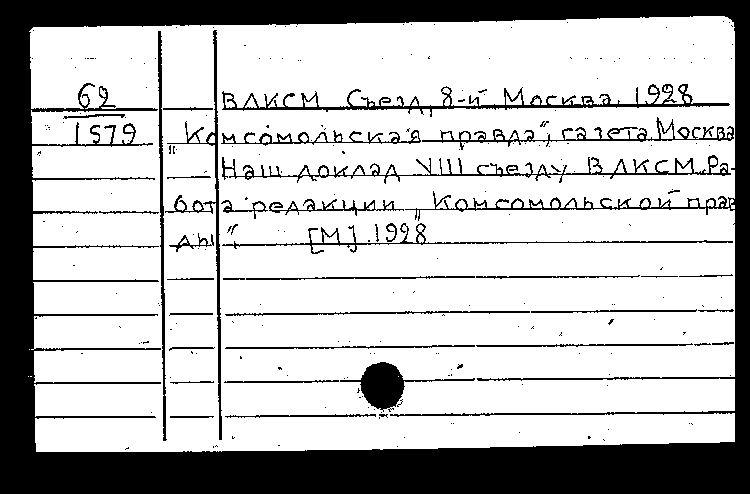 62
1579
ВЛКСМ. Съезд, 8-й Москва. 1928
„Комсомольская правда", газета. Москва
Наш доклад VIII съезду ВЛКСМ. Ра-
бота редакции „Комсомольской прав
ды". [М]. 1928